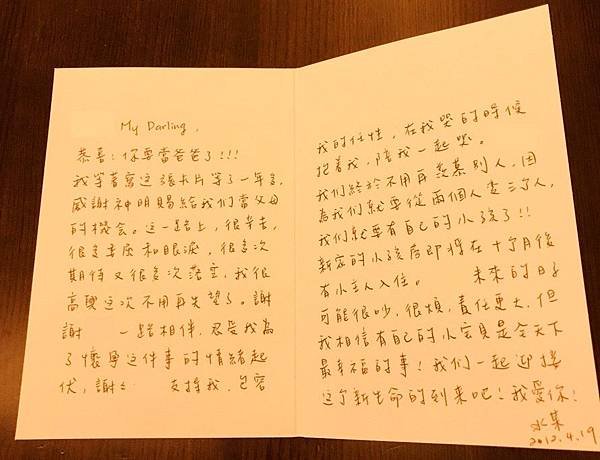 My Darling,
恭喜!你要當爸爸了!!!
我等著寫這張卡片等了一年多,
感謝神明賜給我們當父母
的機會。這一路上,很辛苦,
很多委屈和眼淚,很多次
期待又很多次落空,我很
高興這次不用再失望了。謝
謝 一路相伴,忍受我為
了懷孕這件事的情緒起
伏,謝謝 支持我,包容
我的任性,在我哭的時候
抱着我,陪我一起哭。
我們終於不用再羨慕別人,因
為我們就要從兩個人變三個人,
我們就要有自己的小孩了!!
新家的小孩房即將在十個月後
有小主人入住。 未來的日子
可能很吵,很煩,責任更大,但
我相信有自己的小宝貝是全天下
最幸福的事!我们一起迎接
這个新生命的到來吧!我愛你!
2012.4.19